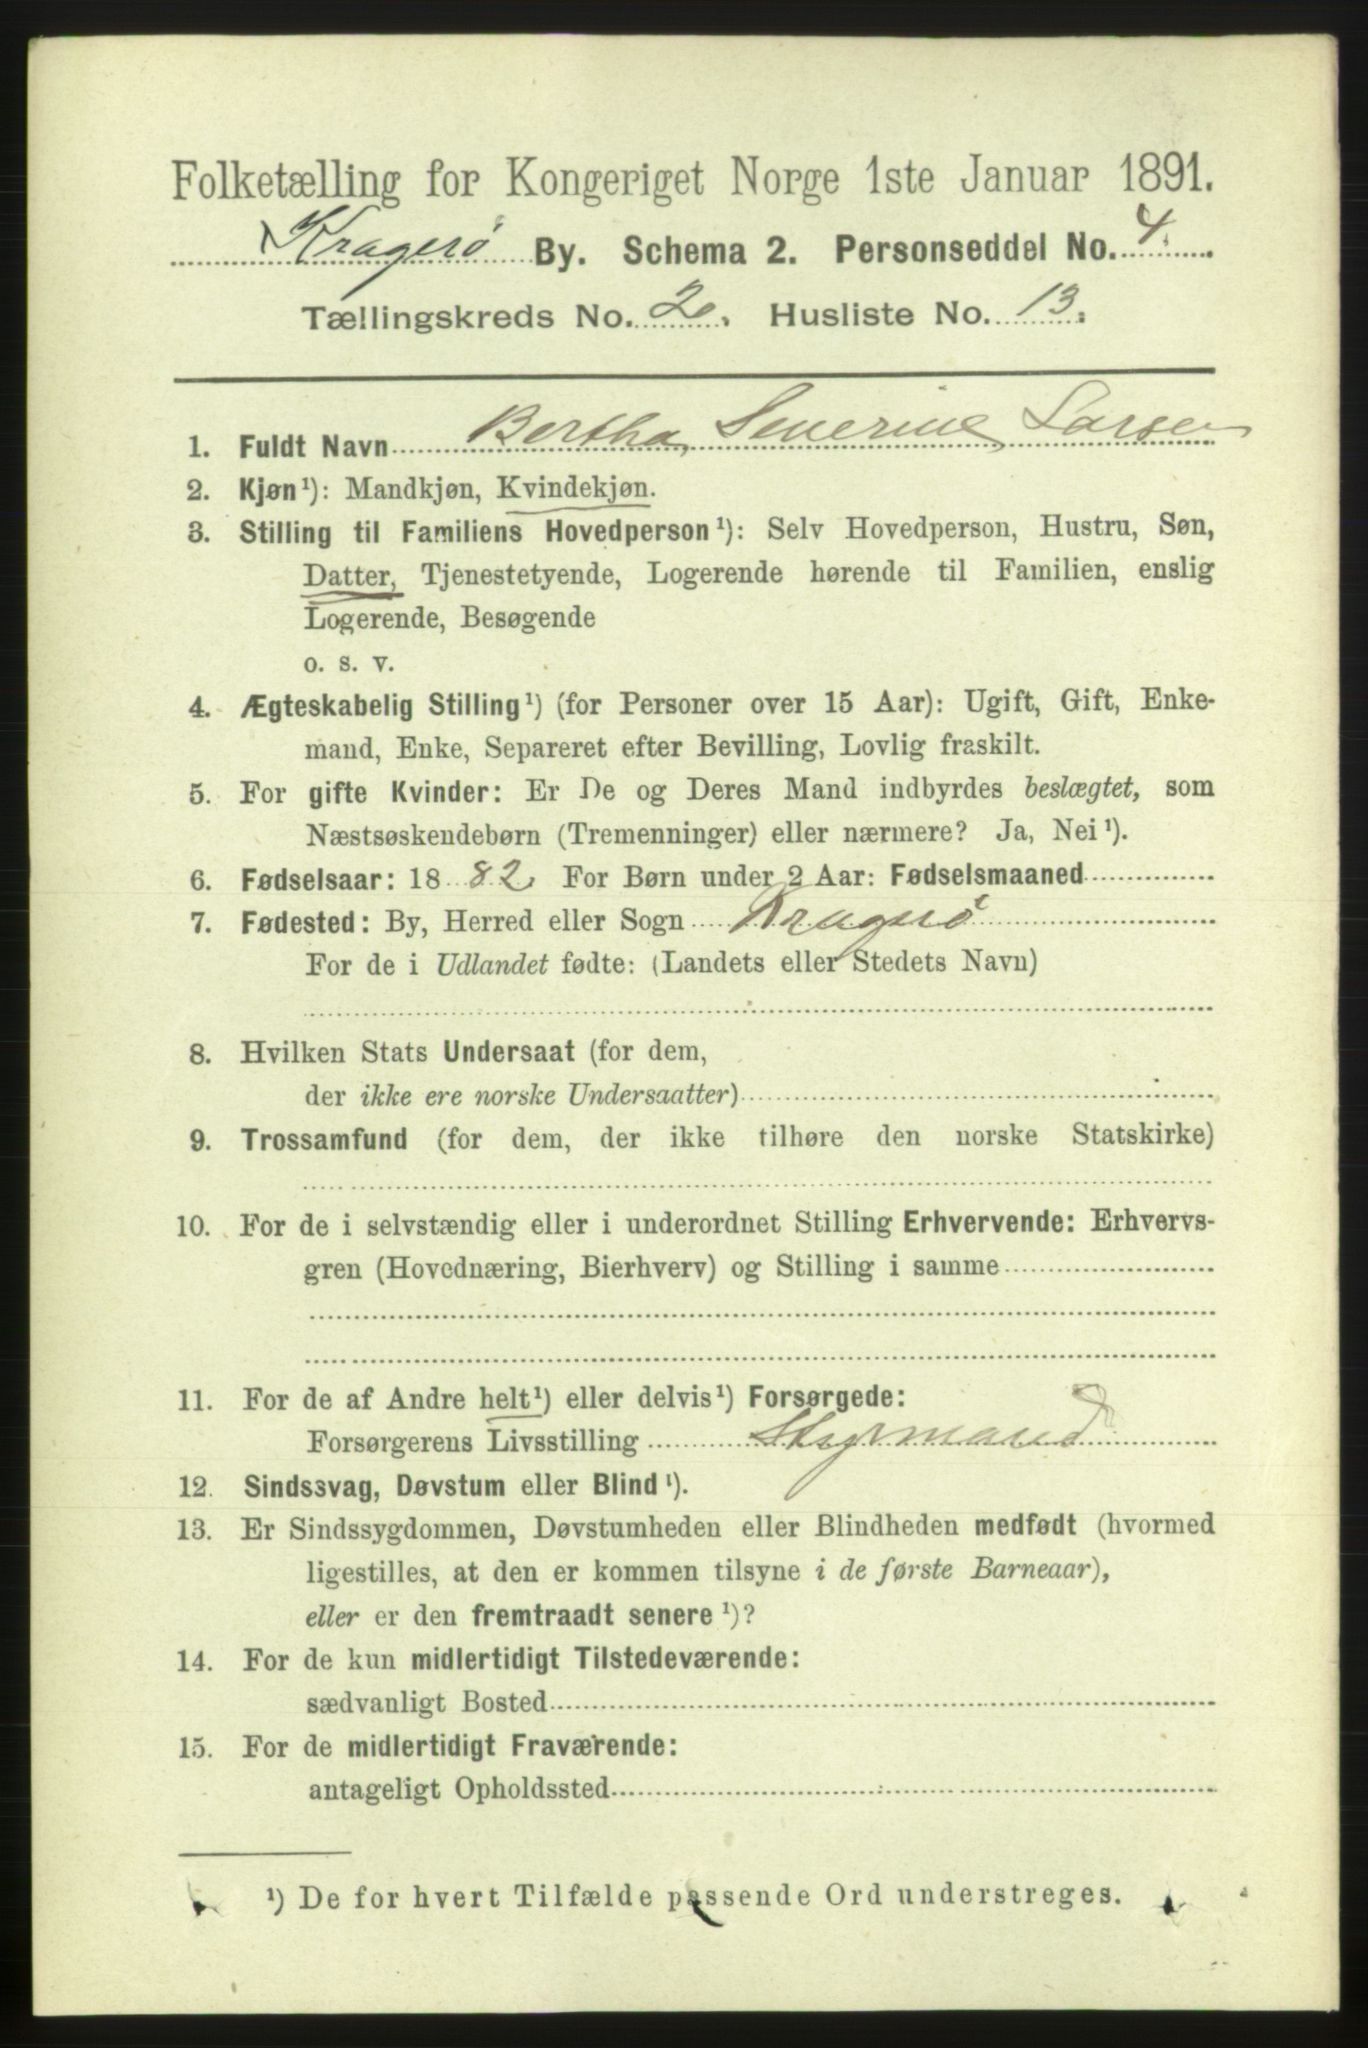 Folketælling for Kongeriget Norge 1ste Januar 1891.
Kragerø By. Schema 2. Personseddel No. 4.
Tællingskreds No. 2. Husliste No. 13.
1. Fuldt Navn Bertha Severine Larsen
2. Kjøn¹): Mandkjøn, Kvindekjøn.
3. Stilling til Familiens Hovedperson¹): Selv Hovedperson, Hustru, Søn,
Datter, Tjenestetyende, Logerende hørende til Familien, enslig
Logerende, Besøgende
o. s. v.
4. Ægteskabelig Stilling¹) (for Personer over 15 Aar): Ugift, Gift, Enke-
mand, Enke, Separeret efter Bevilling, Lovlig fraskilt.
5. For gifte Kvinder: Er De og Deres Mand indbyrdes beslægtet, som
Næstsøskendebørn (Tremenninger) eller nærmere? Ja, Nei¹).
6. Fødselsaar: 1882 For Børn under 2 Aar: Fødselsmaaned
7. Fødested: By, Herred eller Sogn Kragerø
For de i Udlandet fødte: (Landets eller Stedets Navn)
8. Hvilken Stats Undersaat (for dem,
der ikke ere norske Undersaatter)
9. Trossamfund (for dem, der ikke tilhøre den norske Statskirke)
10. For de i selvstændig eller i underordnet Stilling Erhvervende: Erhvervs-
gren (Hovednæring, Bierhverv) og Stilling i samme
11. For de af Andre helt¹) eller delvis¹) Forsørgede:
Forsørgerens Livsstilling Styrmand
12. Sindssvag, Døvstum eller Blind¹).
13. Er Sindssygdommen, Døvstumheden eller Blindheden medfødt (hvormed
ligestilles, at den er kommen tilsyne i de første Barneaar),
eller er den fremtraadt senere¹)?
14. For de kun midlertidigt Tilstedeværende:
sædvanligt Bosted
15. For de midlertidigt Fraværende:
antageligt Opholdssted
¹) De for hvert Tilfælde passende Ord understreges.